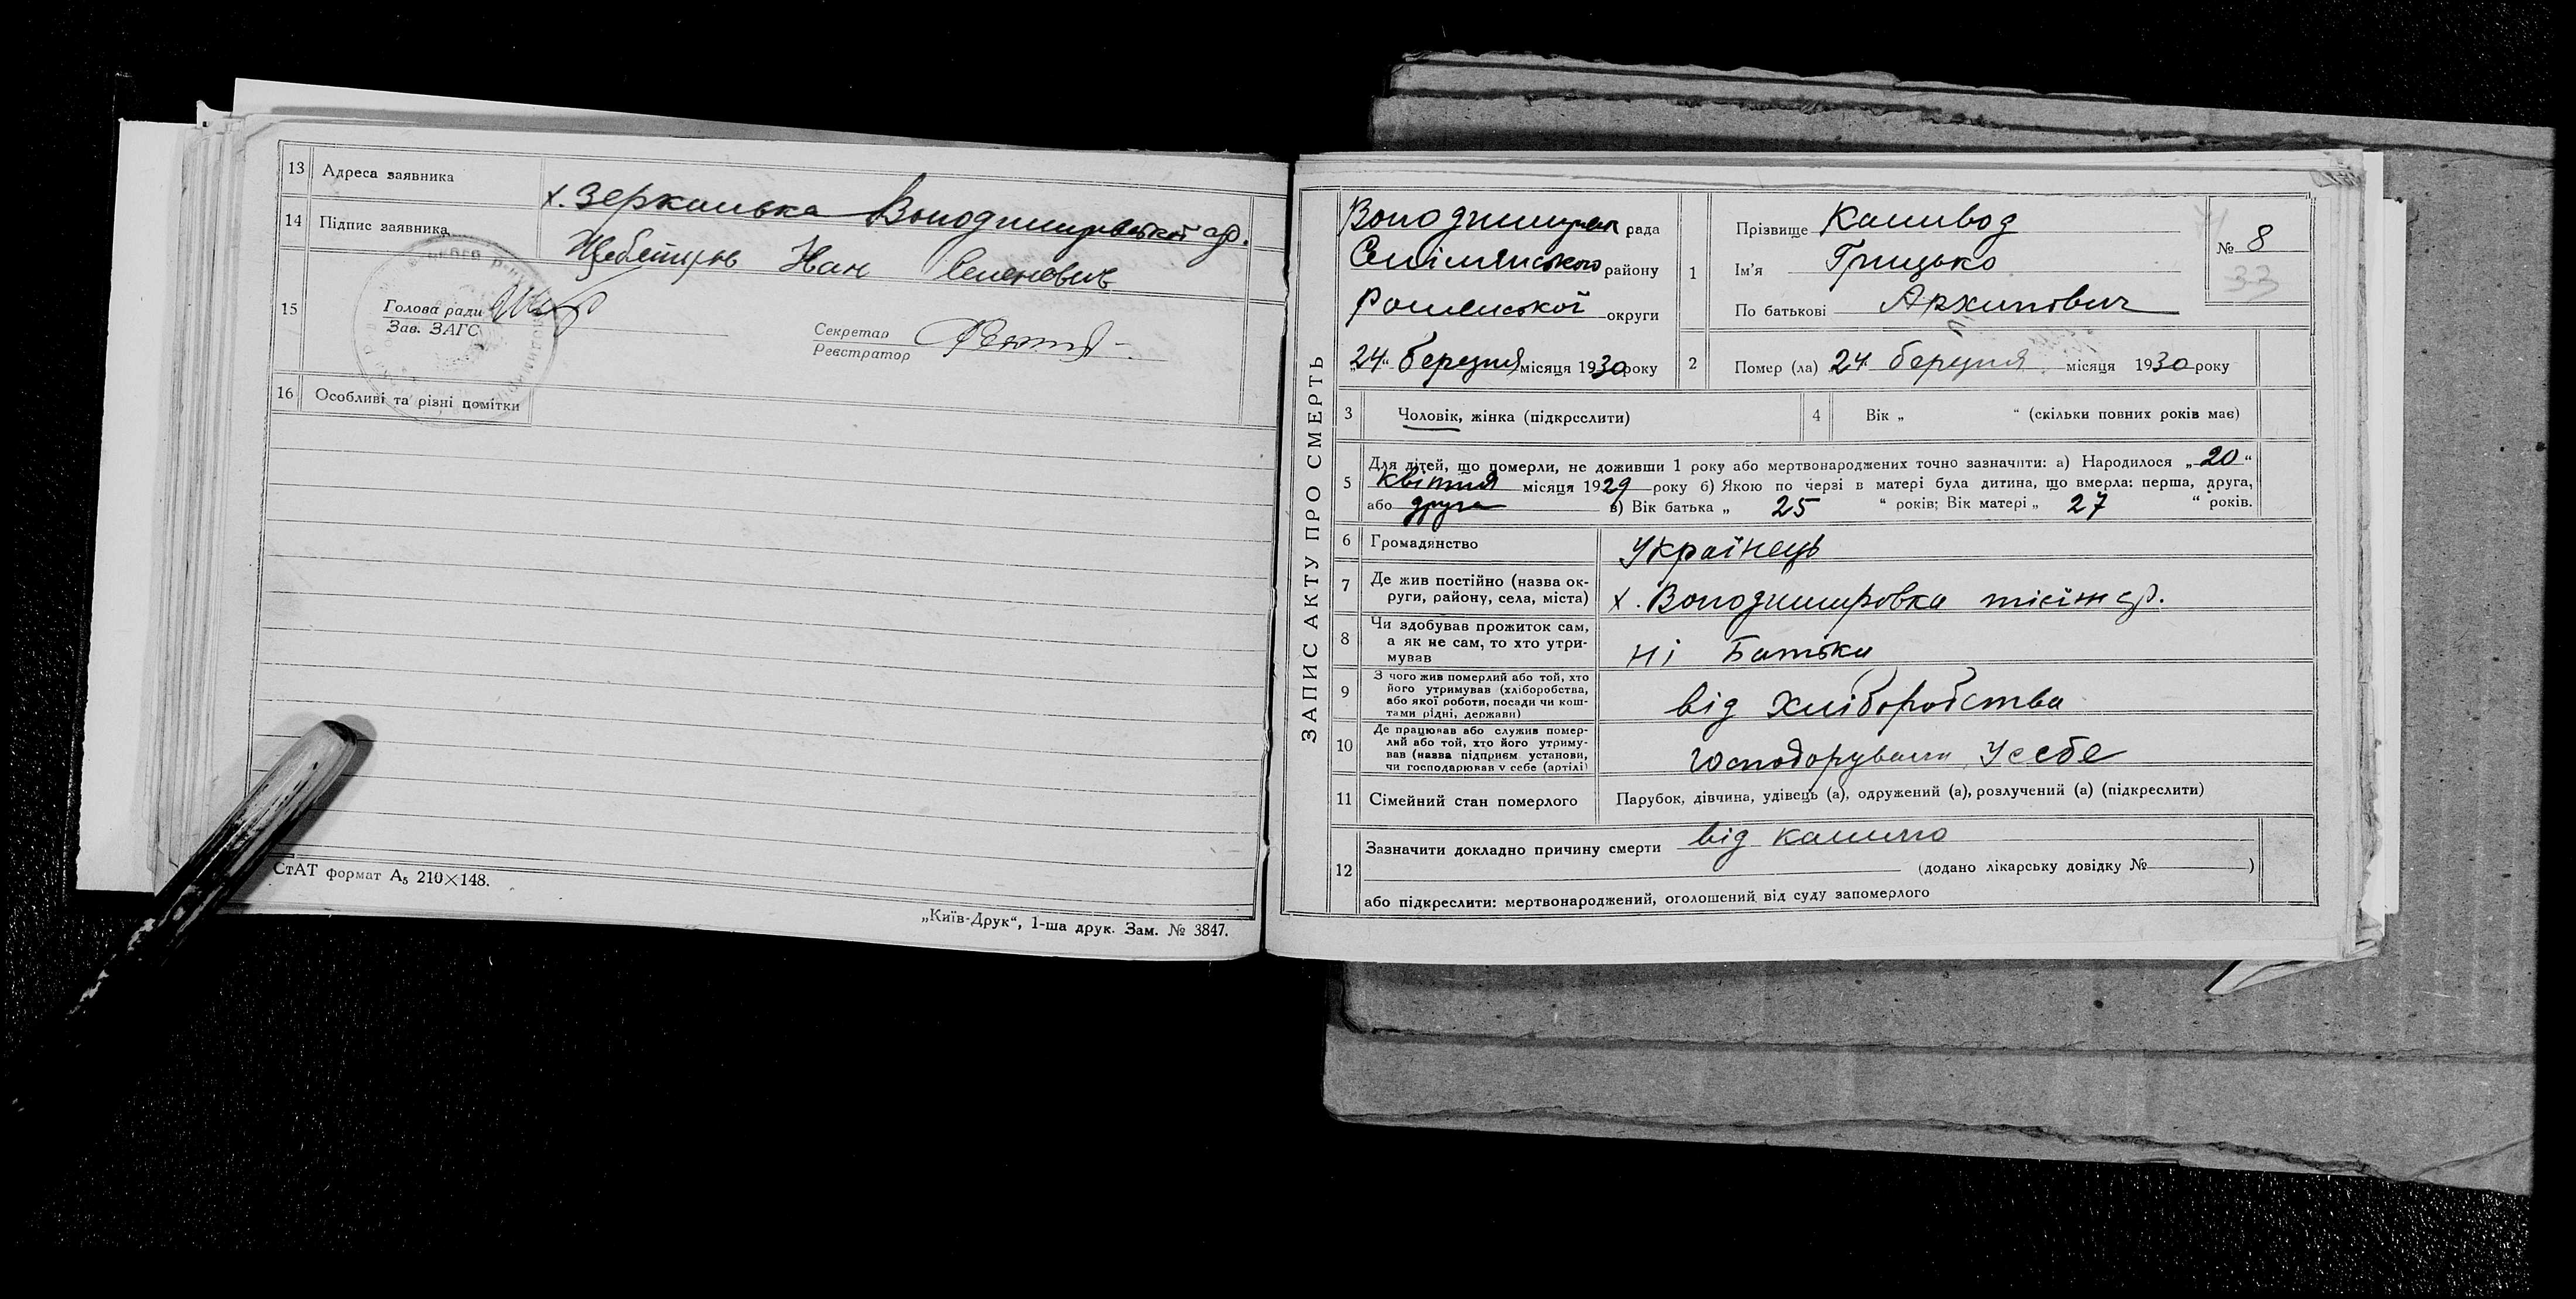 13 Адреса заявника х. Зеркалька Володимирівської с/р.
14 Підпис заявника Щебетун Іван Семенович
15 Голова ради
Зав. ЗАГС
Секретар
Реєстратор
16 Особливі та різні помітки
СтАТ формат А₅ 210×148.
„Київ-Друк“, 1-ша друк. Зам. № 3847.
ЗАПИС АКТУ ПРО СМЕРТЬ
Володимирськ рада
району
Роменської округи
„24“ березня місяця 1930 року
1 Прізвище Каливод
Ім'я Грицько
По батькові Архипович
№ 8
33
2 Помер (ла) 24 березня місяця 1930 року
3 Чоловік, жінка (підкреслити)
4 Вік „ “ (скільки повних років має)
5 Для дітей, що померли, не доживши 1 року або мертвонароджених точно зазначити: а) Народилося „20“
квітня місяця 1929 року б) Якою по черзі в матері була дитина, що вмерла: перша, друга,
або друга в) Вік батька „ 25 “ років; Вік матері „ 27 “ років.
6 Громадянство Українець
7 Де жив постійно (назва ок-
руги, району, села, міста) х. Володимировка тієїж с/р.
8 Чи здобував прожиток сам,
а як не сам, то хто утри-
мував ні Батьки
9 З чого жив померлий або той, хто
його утримував (хліборобства,
або якої роботи, посади чи кош-
тами рідні, держави) від хліборобства
10 Де працював або служив помер-
лий або той, хто його утриму-
вав (назва підприєм. установи,
чи господарював у себе (артілі) господорували у себе
11 Сімейний стан померлого Парубок, дівчина, удівець (а), одружений (а), розлучений (а) (підкреслити)
12 Зазначити докладно причину смерти від кашлю
(додано лікарську довідку № )
або підкреслити: мертвонароджений, оголошений від суду запомерлого